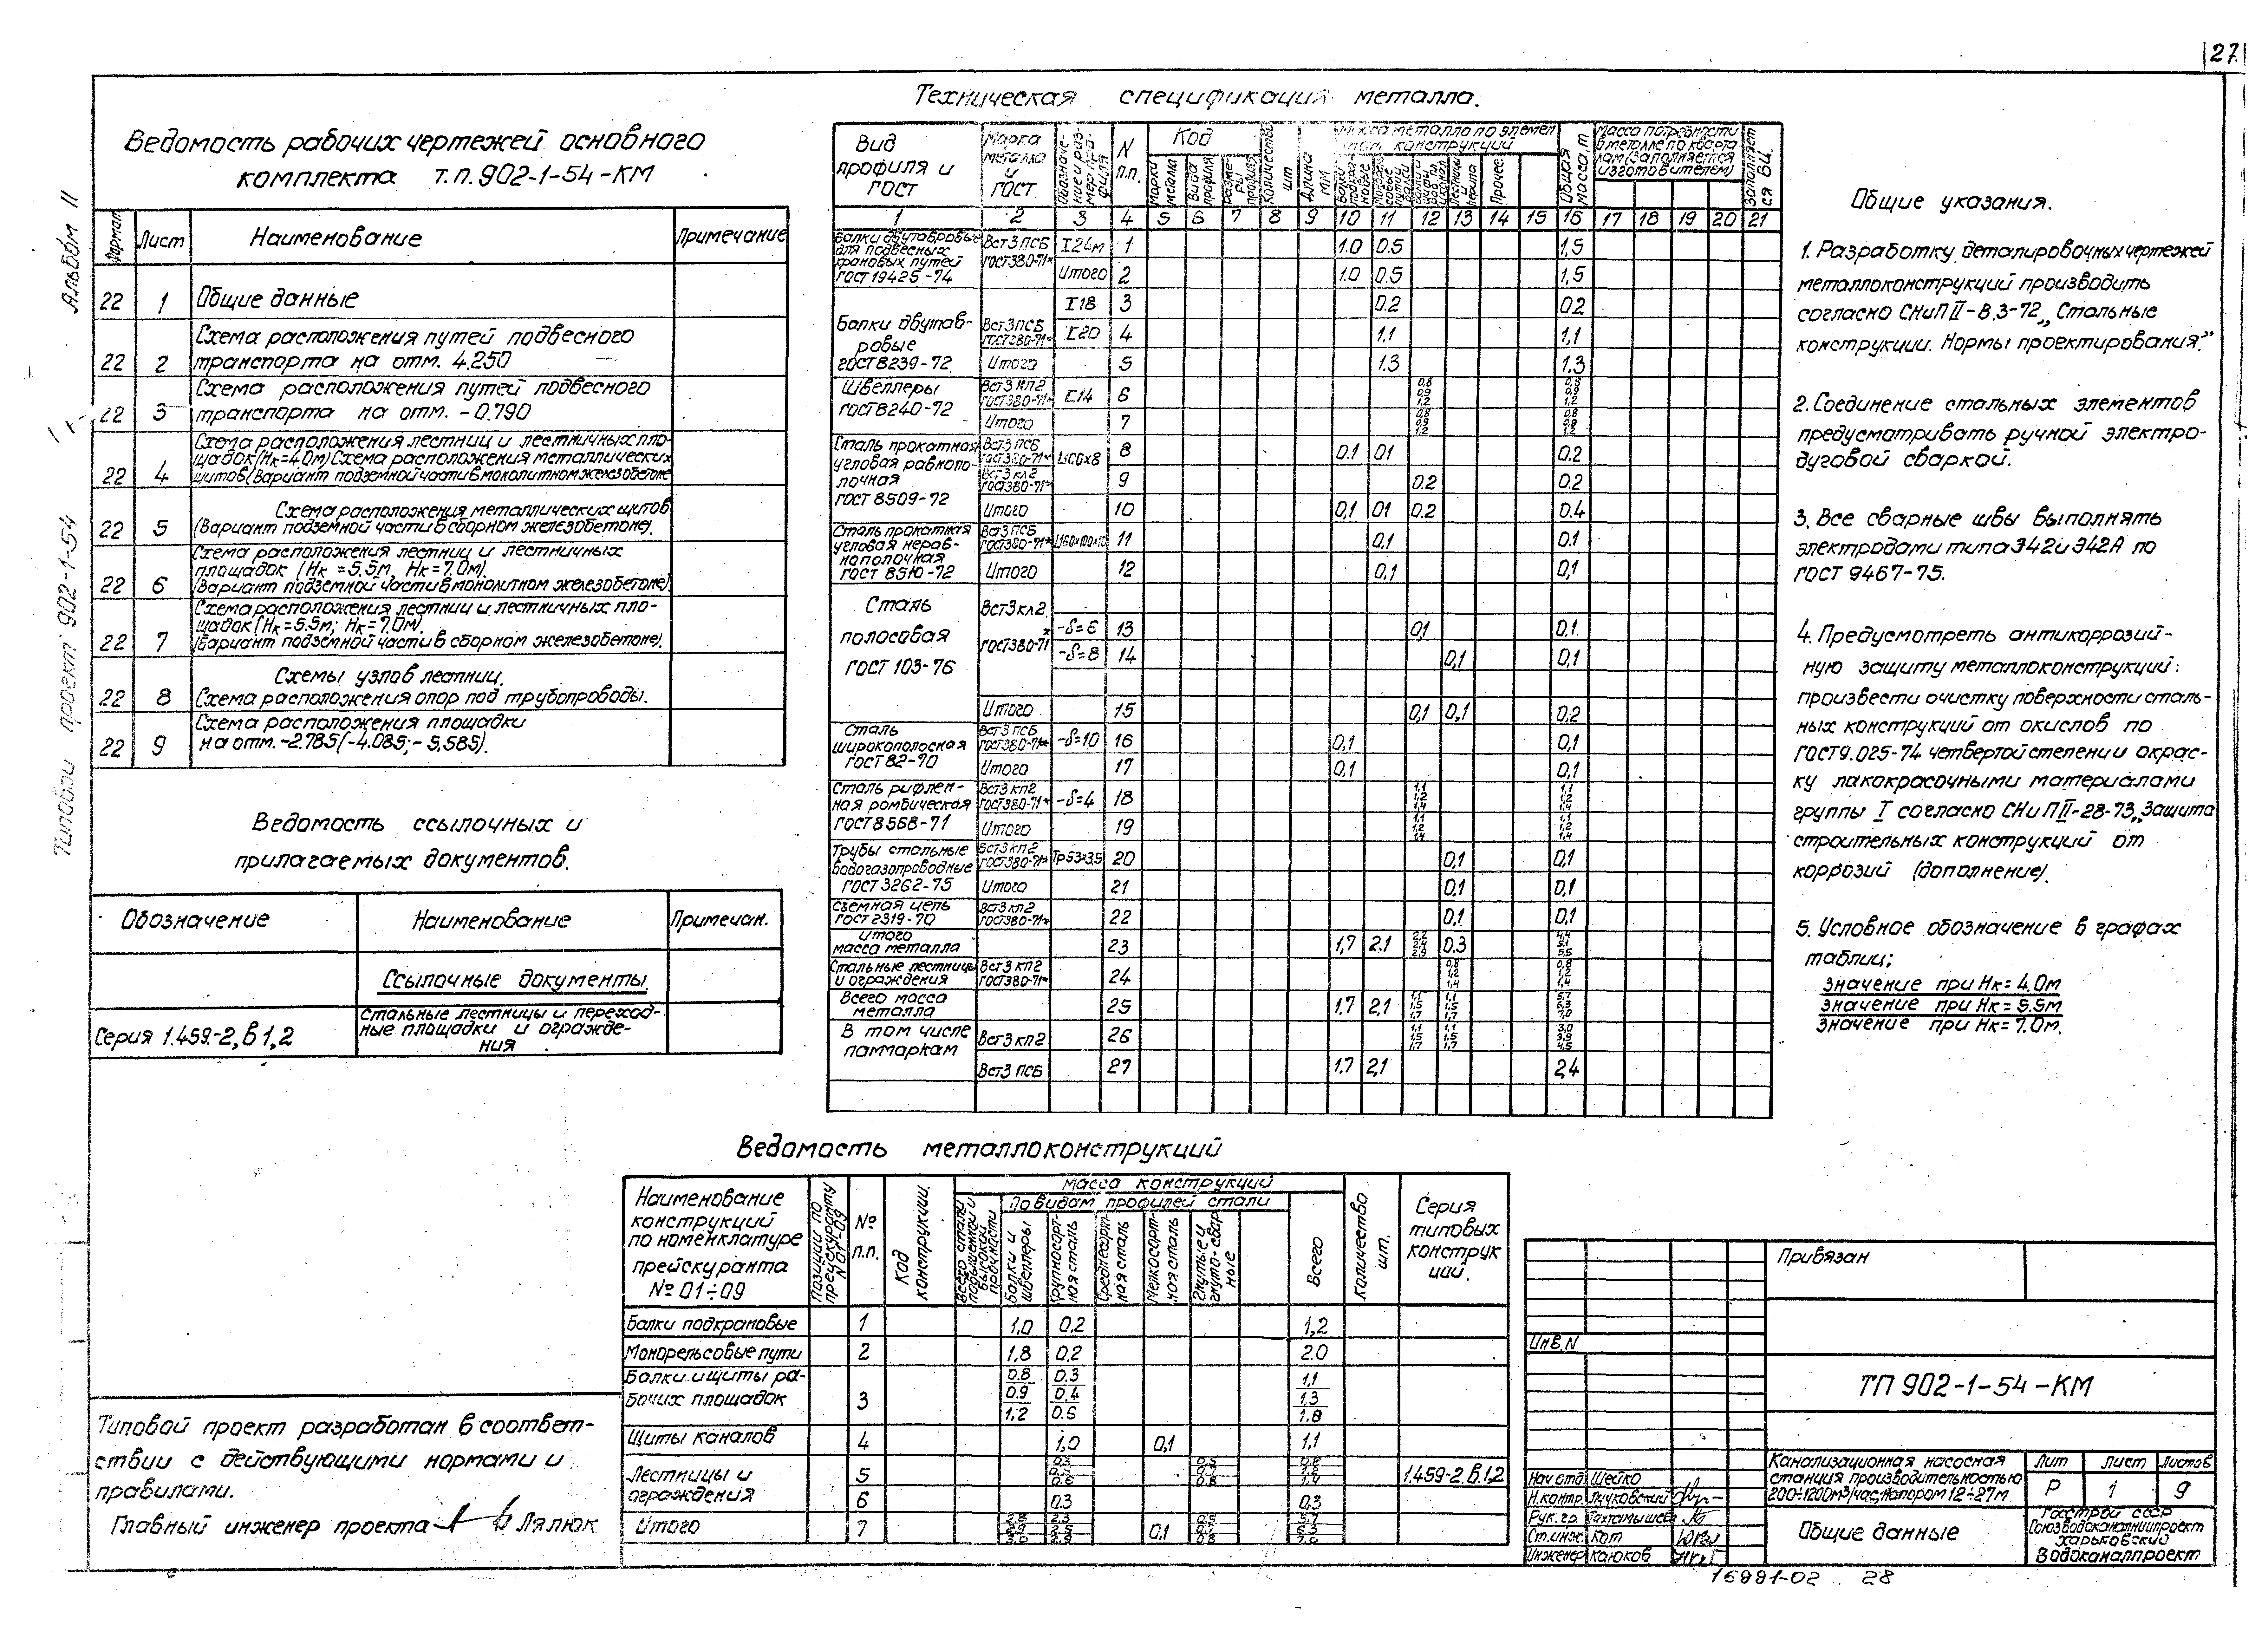 27
Альбом II
Типовой проект 902-1-54
Ведомость рабочих чертежей основного
комплекта т.п. 902-1-54-КМ
Формат Лист Наименование Примечание
22 1 Общие данные
22 2 Схема расположения путей подвесного
транспорта на отм. 4.250
22 3 Схема расположения путей подвесного
транспорта на отм. -0.790
22 4 Схема расположения лестниц и лестничных пло-
щадок (Нк=4.0м) Схема расположения металлических
щитов (Вариант подземной части в монолитном железобетоне
22 5 Схема расположения металлических щитов
(Вариант подземной части в сборном железобетоне).
22 6 Схема расположения лестниц и лестничных
площадок (Нк=5,5м, Нк=7,0м).
(Вариант подземной части в монолитном железобетоне)
22 7 Схема расположения лестниц и лестничных пло-
щадок (Нк=5.5м; Нк=7.0м)
(Вариант подземной части в сборном железобетоне).
22 8 Схемы узлов лестниц.
Схема расположения опор под трубопроводы.
22 9 Схема расположения площадки
на отм.-2.785(-4.085;-5,585).
Ведомость ссылочных и
прилагаемых документов.
Обозначение Наименование Примечан.
Ссылочные документы
Серия 1.459-2, в 1,2 Стальные лестницы и переход-
ные площадки и огражде-
ния
Типовой проект разработан в соответ-
ствии с действующими нормами и
правилами.
Главный инженер проекта Лялюк
Техническая спецификация металла.
Вид профиля и ГОСТ
Марка металла и ГОСТ
Обозначе-ние и раз-мер про-филя
N п.п.
Код
Марки металла
Вида профиля
Разме-ры профиля
Количество шт
Длина мм
Масса металла по элемен
там конструкций
Лестницы и перила
Прочее
Общая масса, т
Масса потребности
в металле по кварта
лам (заполняется
изготовителем)
Заполняет ся ВЦ.
1 2 3 4 5 6 7 8 9 10 11 12 13 14 15 16 17 18 19 20 21
Балки двутавровые для подвесных крановых путей ГОСТ 19425-74 Вст3 пс6 ГОСТ380-71* I24м 1 1.0 0.5 1,5
Итого 2 1.0 0.5 1,5
Балки двутав-ровые ГОСТ 8239-72 I18 3 0.2 0.2
Вст3 пс6 ГОСТ380-71* I20 4 1.1 1,1
Итого 5 1.3 1.3
Швеллеры ГОСТ 8240-72 Вст3 кп2 ГОСТ380-71* [14 6 0,8 0,9 1,2 0,8 0,9 1,2
Итого 7 0,8 0,9 1,2 0,8 0,9 1,2
Сталь прокатная угловая равнопо-лочная ГОСТ 8509-72 Вст3 пс6 ГОСТ380-71* L100х8 8 0.1 01 0.2
Вст3 кп2 ГОСТ380-71* 9 0.2 0.2
Итого 10 0,1 01 0.2 0.4
Сталь прокатная угловая нерав-нополочная ГОСТ 8510-72 Вст3 пс6 ГОСТ380-71* L160х100х10 11 0,1 0.1
Итого 12 0,1 0,1
Сталь полосовая ГОСТ 103-76 Вст3кп2 ГОСТ380-71* -δ=6 13 0,1 0.1
-δ=8 14 0,1 0,1
Итого 15 0,1 0,1 0.2
Сталь широкополосная ГОСТ 82-70 Вст3 пс6 ГОСТ380-71* -δ=10 16 0,1 0,1
Итого 17 0.1 0,1
Сталь рифлен-ная ромбическая ГОСТ 8568-71 Вст3 кп2 ГОСТ380-71* -δ=4 18 1,1 1,2 1,4 1,1 1,2 1,4
Итого 19 1,1 1,2 1,4 1,1 1,2 1,4
Трубы стальные водогазопроводные ГОСТ 3262-75 Вст3 кп2 ГОСТ380-71* Тр53×3,5 20 0,1 0,1
Итого 21 0.1 0,1
Съемная цепь ГОСТ 2319-70 Вст3 кп2 ГОСТ380-71* 22 0,1 0,1
Итого масса металла 23 1,7 2.1 2,2 2,4 2,9 0.3 4,4 5,1 5,5
Стальные лестницы и ограждения Вст3 кп2 ГОСТ380-71* 24 0,8 1,2 1,4 0,8 1,2 1,4
Всего масса металла 25 1.7 2,1 1,1 1,5 1,7 1,1 1,5 1,7 5,7 6,3 7,0
В том числе по маркам Вст3 кп2 26 1,1 1,5 1,7 1,1 1,5 1,7 3,0 3,9 4,5
Вст3 пс6 27 1.7 2,1 2,4
Общие указания.
1. Разработку деталировочных чертежей
металлоконструкций производить
согласно СНиП II-В.3-72 „Стальные
конструкции. Нормы проектирования."
2. Соединение стальных элементов
предусматривать ручной электро-
дуговой сваркой.
3. Все сварные швы выполнять
электродами типа Э42 и Э42А по
ГОСТ 9467-75.
4. Предусмотреть антикоррозий-
ную защиту металлоконструкций:
произвести очистку поверхности сталь-
ных конструкций от окислов по
ГОСТ 9.025-74 четвертой степени и окрас-
ку лакокрасочными материалами
группы I согласно СНиП II-28-73 „Защита
строительных конструкций от
коррозий (дополнение).
5. Условное обозначение в графах
таблиц;
значение при Нк=4.0м
значение при Нк=5.5м
значение при Нк=7.0м.
Ведомость металлоконструкций
Наименование конструкций по номенклатуре прейскуранта № 01÷09
Позиции по прейскуранту N 01-09
№ п.п.
Код конструкции.
Масса конструкций
Всего стали повышенной и высокой прочности
По видам профилей стали
Балки и швеллеры
Крупносорт-ная сталь
Среднесорт-ная сталь
Мелкосорт-ная сталь
Гнутые и гнуто-свар ные
Всего
Количество шт.
Серия типовых конструк ций.
Балки подкрановые 1 1,0 0.2 1,2
Монорельсовые пути 2 1,8 0.2 2.0
Балки и щиты ра-бочих площадок 3 0.8 0.9 1,2 0.3 0,4 0.6 1,1 1,3 1.8
Щиты каналов 4 1,0 0,1 1,1
Лестницы и ограждения 5 0.3 0.6 0,5 0,8 0,8 1,2 1,4 1.459-2, в.1,2
6 0.3 0,3
Итого 7 2.8 2.9 3.0 2.3 2.5 2.9 0.1 0,5 0,8 5,7 6,3 7,0
Привязан
Инв.N
ТП 902-1-54-КМ
Нач.отд. Шейко
Н.контр. Лучковский
Рук.гр. Тахтамышев
Ст.инж. Кот
Инженер Каюков
Канализационная насосная
станция производительностью
200÷1200м³/час, напором 12÷27м
Лит Лист Листов
Р 1 9
Общие данные
Госстрой СССР
Союзводоканалниипроект
Харьковский
Водоканалпроект
16991-02 28